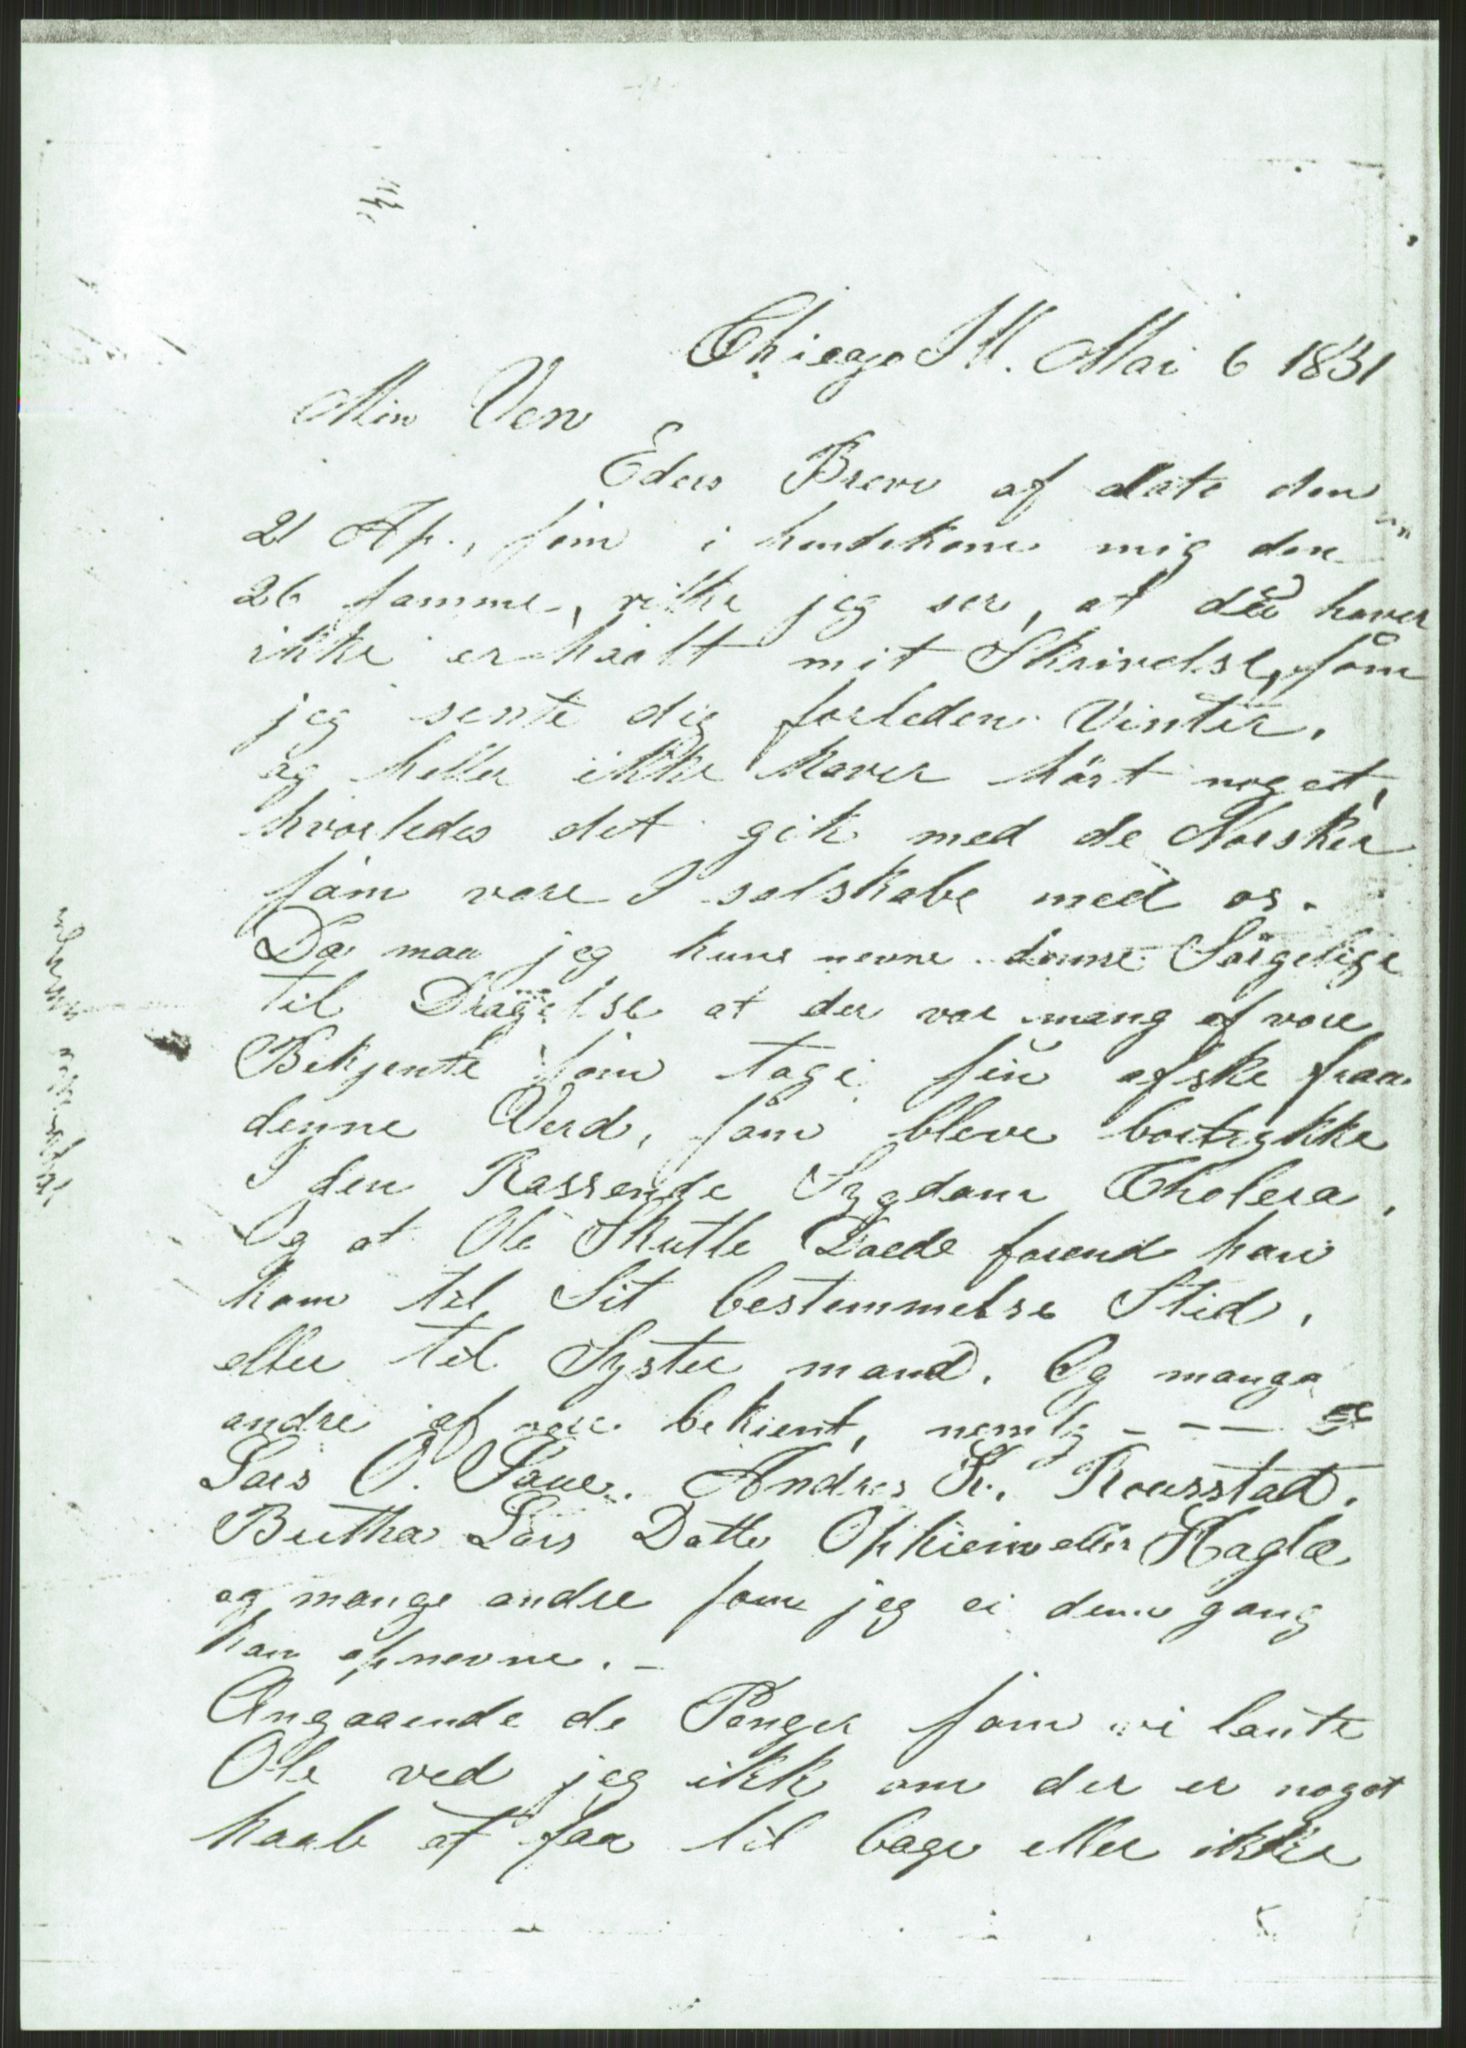 Chicago Ill. Mai 6 1831
Min Ven
Eders Breve af date den
21 Ap., som i hendekom mig den
26 samme, vilke jeg ser, at du haver
ikke erhaalt mit Skrivelse, som
jeg sente dig forleden Vinter.
og heller ikke haver hört noget,
hvorledes det gik med de Norsker
som vare I selskabe med os.
Da maa jeg kuns nevne denne Sörgelige
til Dragelse at der var mang af vore
Bekjente som tage sin afske fraa
denne Verd, som bleve bortrykke
I den Rassende Sygdom Cholera.
Og at Ole Skutle Doede forend han
kom til Sit bestemmelse Sted,
eller til Syster mand. Og mange
andre af vore bekient, nemlig - - -
Lars O. Saue. Andres K. Roersstad.
Buttha Lars Datte Opheim eller Hagla
og mange andre som jeg ei denn gang
kan opnevne. -
Angaaende de Penger som vi lante
Ole ved jeg ikk om der er noget
haab at faa til bage eller ikke